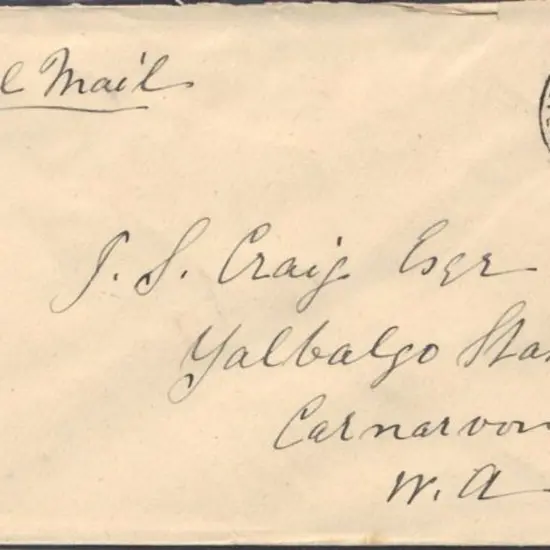 l Mail
J. S. Craig Esqr
Yalbalgo Sta
Carnarvon
W. A